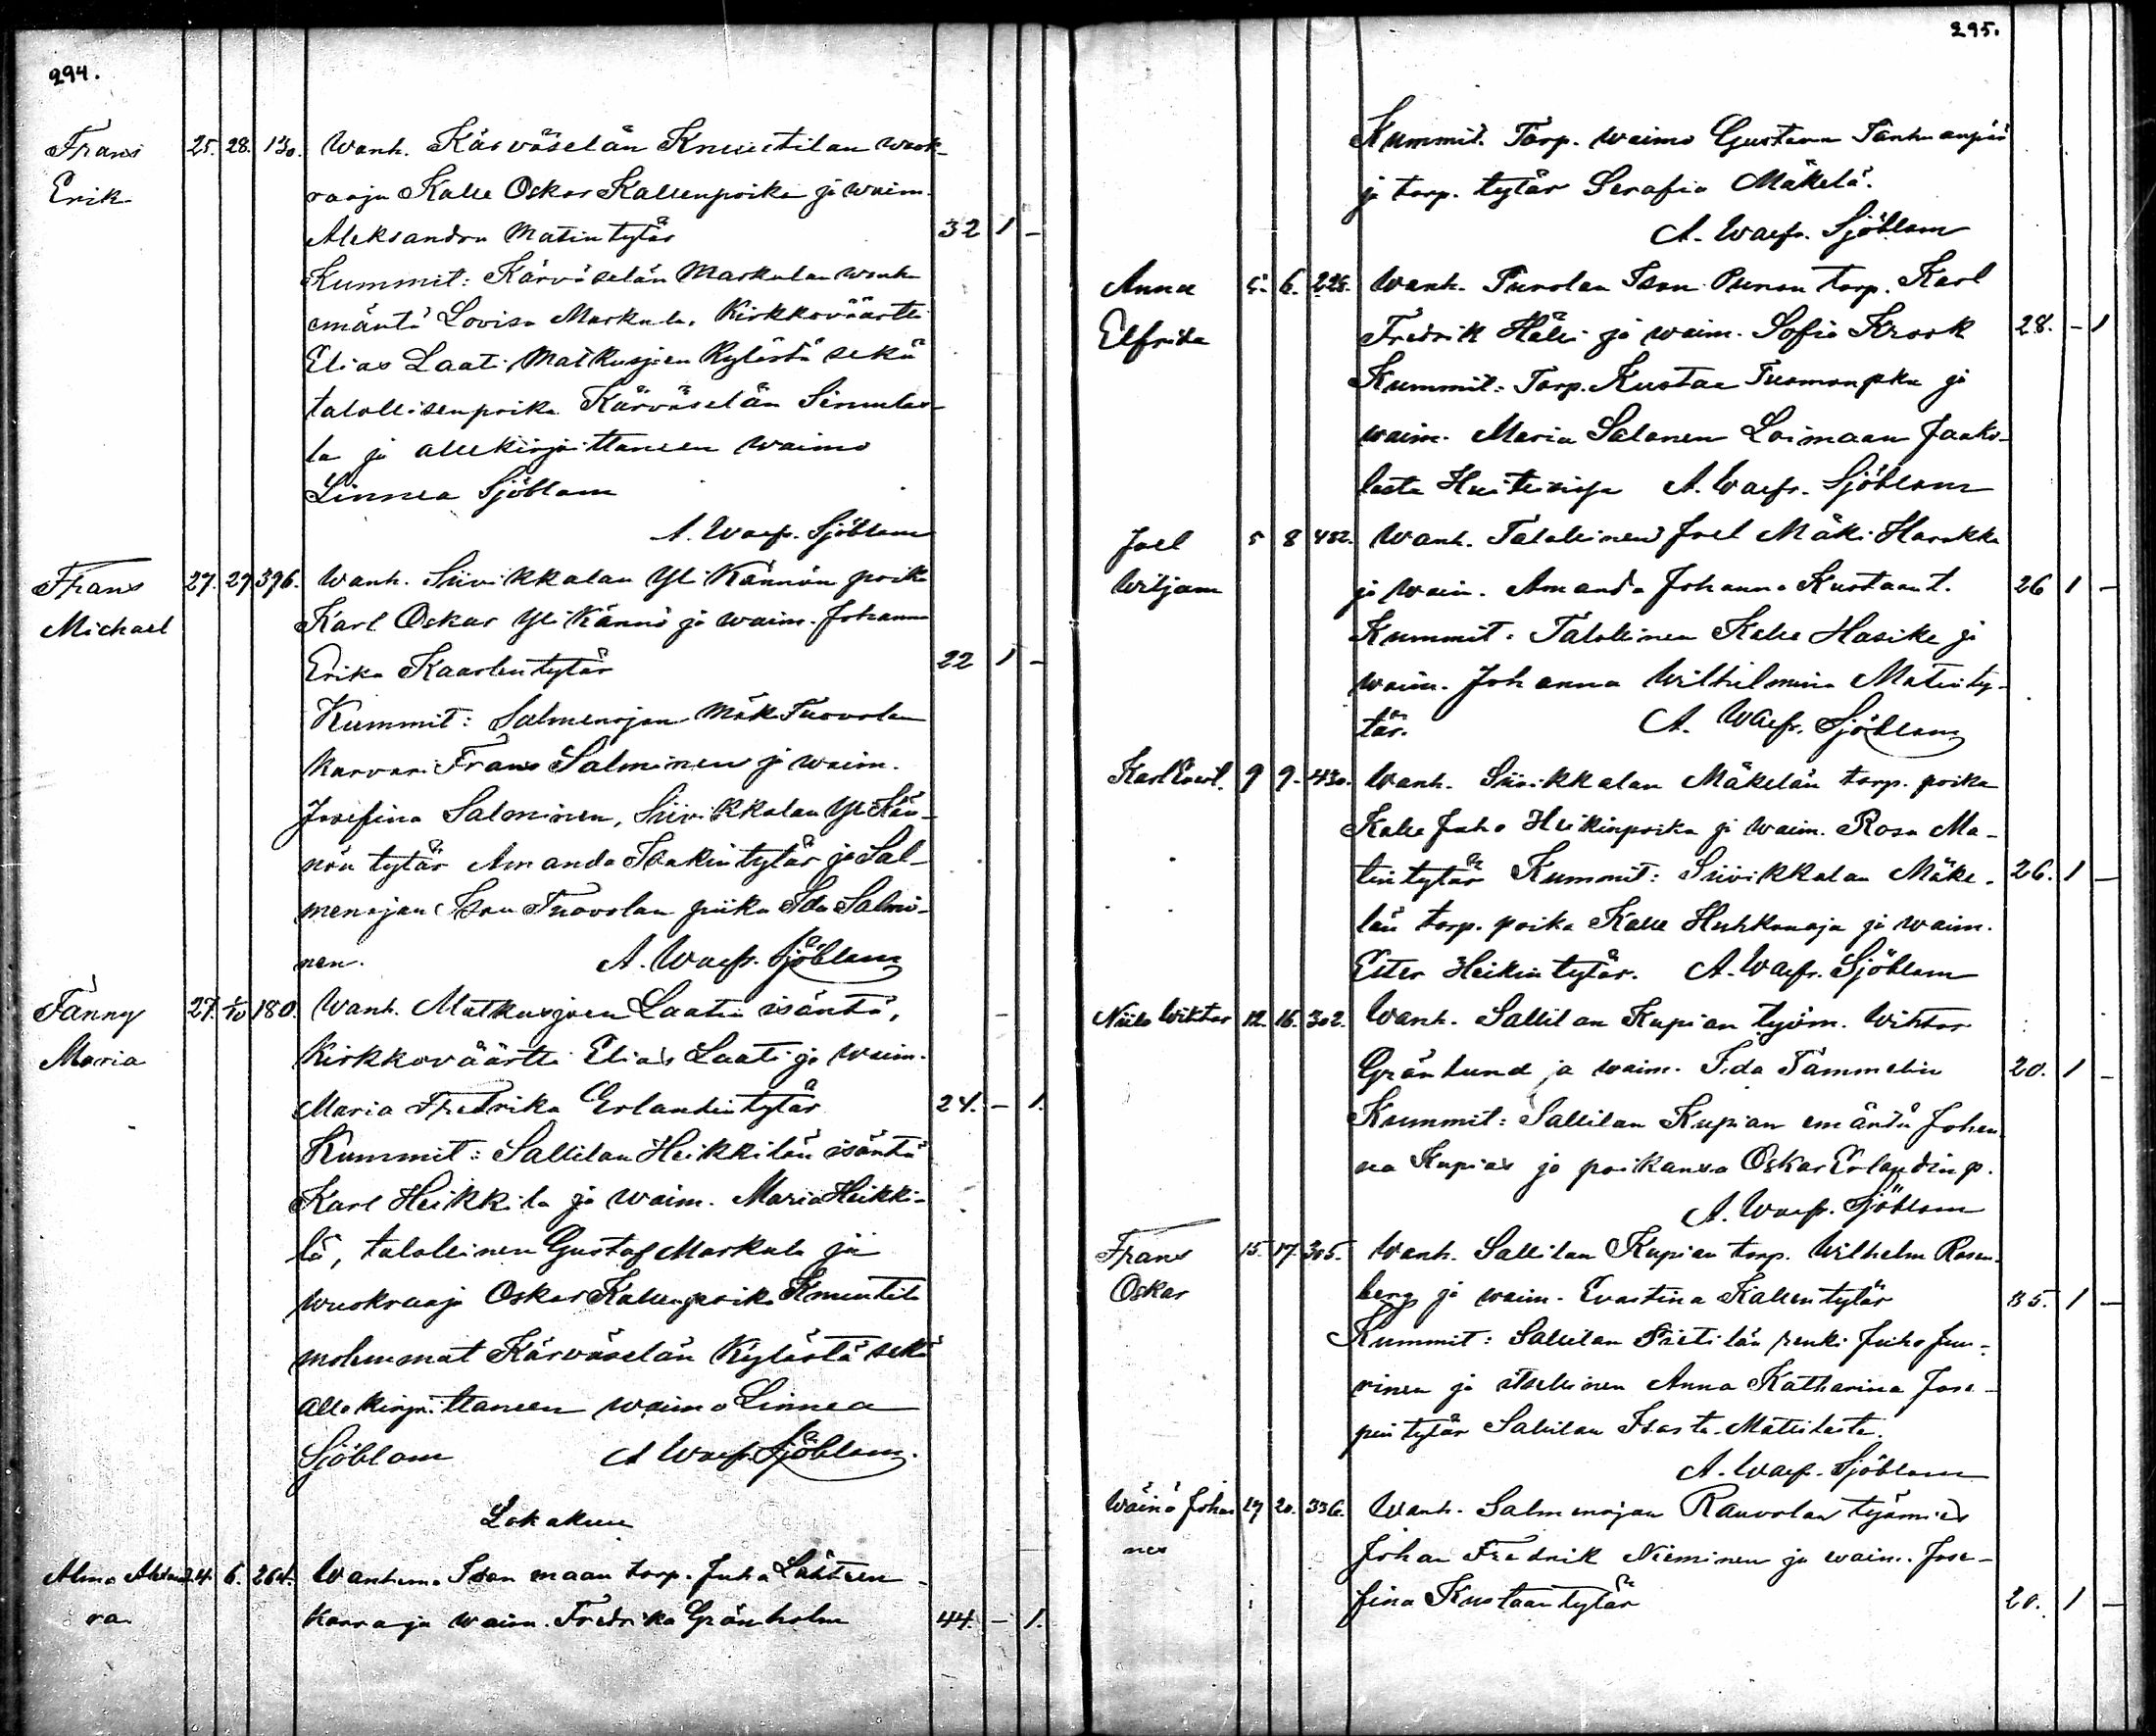 294.
Frans 25. 28. 130. Wanh. Kärväselän Knuutilan wuok-
Erik raaja Kalle Oskar Kallenpoika ja waim.
Aleksandra Matintytär 32 1 -
Kummit: Kärväselän Markulan wanh.
emäntä Lovisa Markula, Kirkkoväärtti
Elias Laati Matkusjoen Kylästä sekä
talollisenpoika Kärväselän
la ja allekirjoittaneen waimo
Linnea Sjöblom
A. Waef. Sjöblom
Frans 27. 29 396. Wanh. Siivikkalan Yli Kännön poika
Michael Karl Oskar Yli Kännö ja waim. Johanna
Erika Kaarlentytär 22 1 -
Kummit: Salmenojan Mäk Tuovolan
karvari Frans Salminen ja waim.
Josefina Salminen, Siivikkalan Yli Kän-
nön tytär Amanda Isakintytär ja Sal-
menojan Ison Tuovolan piika Ida Salmi-
nen. A. Waef. Sjöblom
Fanny 27. 1/10 180. Wanh. Matkusjoen Laatin isäntä,
Maria Kirkkoväärtti Elias Laati ja waim.
Maria Fredrika Erlandintytär 24. - 1.
Kummit: Sallilan Heikkilän isäntä
Karl Heikkila ja waim. Maria Heikki-
lä, talollinen Gustaf Markula ja
wuokraaja Oskar Kallenpoika Knuutila
molemmat Kärväselän Kylästä sekä
allekirjoittaneen waimo Linnea
Sjöblom A Waef. Sjöblom.
Lokakuu
Alma 4. 6. 264. Wanhem. Ison maan torp. Juha Lähteen-
ra korva ja waim. Fredrika Grönholm 44. - 1.
295.
Kummit. Torp. waimo Gustava Tanhuanpää
ja torp. tytär Serafia Mäkelä.
A. Waef. Sjöblom
Anna 5. 6. 228. Wanh. Punolan Ison Punon torp. Karl
Elfrida Fredrik Häli ja waim. Sofia Krook 28. - 1
Kummit: Torp. Kustaa Tuomonpka ja
waim. Maria Salonen Loimaan Jaako-
lasta A. Waef. Sjöblom
Joel 5 8 482. Wanh. Talollinen Joel Mäki Harakka
Wiljam ja waim. Amanda Johanna Kustaant. 26 1 -
Kummit: Talollinen Kalle Hasike ja
waim. Johanna Wilhelmina Matinty-
tär. A. Waef. Sjöblom
Karl Evert. 9 9. 430. Wanh. Siivikkalan Mäkelän torp. poika
Kalle Juho Heikinpoika ja waim. Rosa Ma-
tintytär Kummit: Siivikkalan Mäke- 26. 1 -
län torp. poika Kalle Huhkanoja ja waim.
Ester Heikintytär. A. Waef. Sjöblom
Niilo Wiktor 12. 16. 302. Wanh. Sallilan Kupian työm. Wihtor
Grönlund ja waim. Ida Tammelin 20. 1 -
Kummit: Sallilan Kupian emäntä Johan-
na Kupias ja poikansa Oskar Erlandinp.
A. Waef. Sjöblom
Frans 15. 17. 305. Wanh. Sallilan Kupian torp. Wilhelm Rosen-
Oskar berg ja waim. Evastina Kallentytär 35. 1 -
Kummit: Sallilan Prietilän renki Juho Juu-
rinen ja itsellinen Anna Katharina Jose-
pintytär Sallilan Isosta-Mattilasta.
A. Waef. Sjöblom
Wäinö Johan 19 20. 336. Wanh. Salmenojan Rauvolan työmies
nes Johan Fredrik Nieminen ja waim. Jose-
fina Kustaantytär 20. 1 -